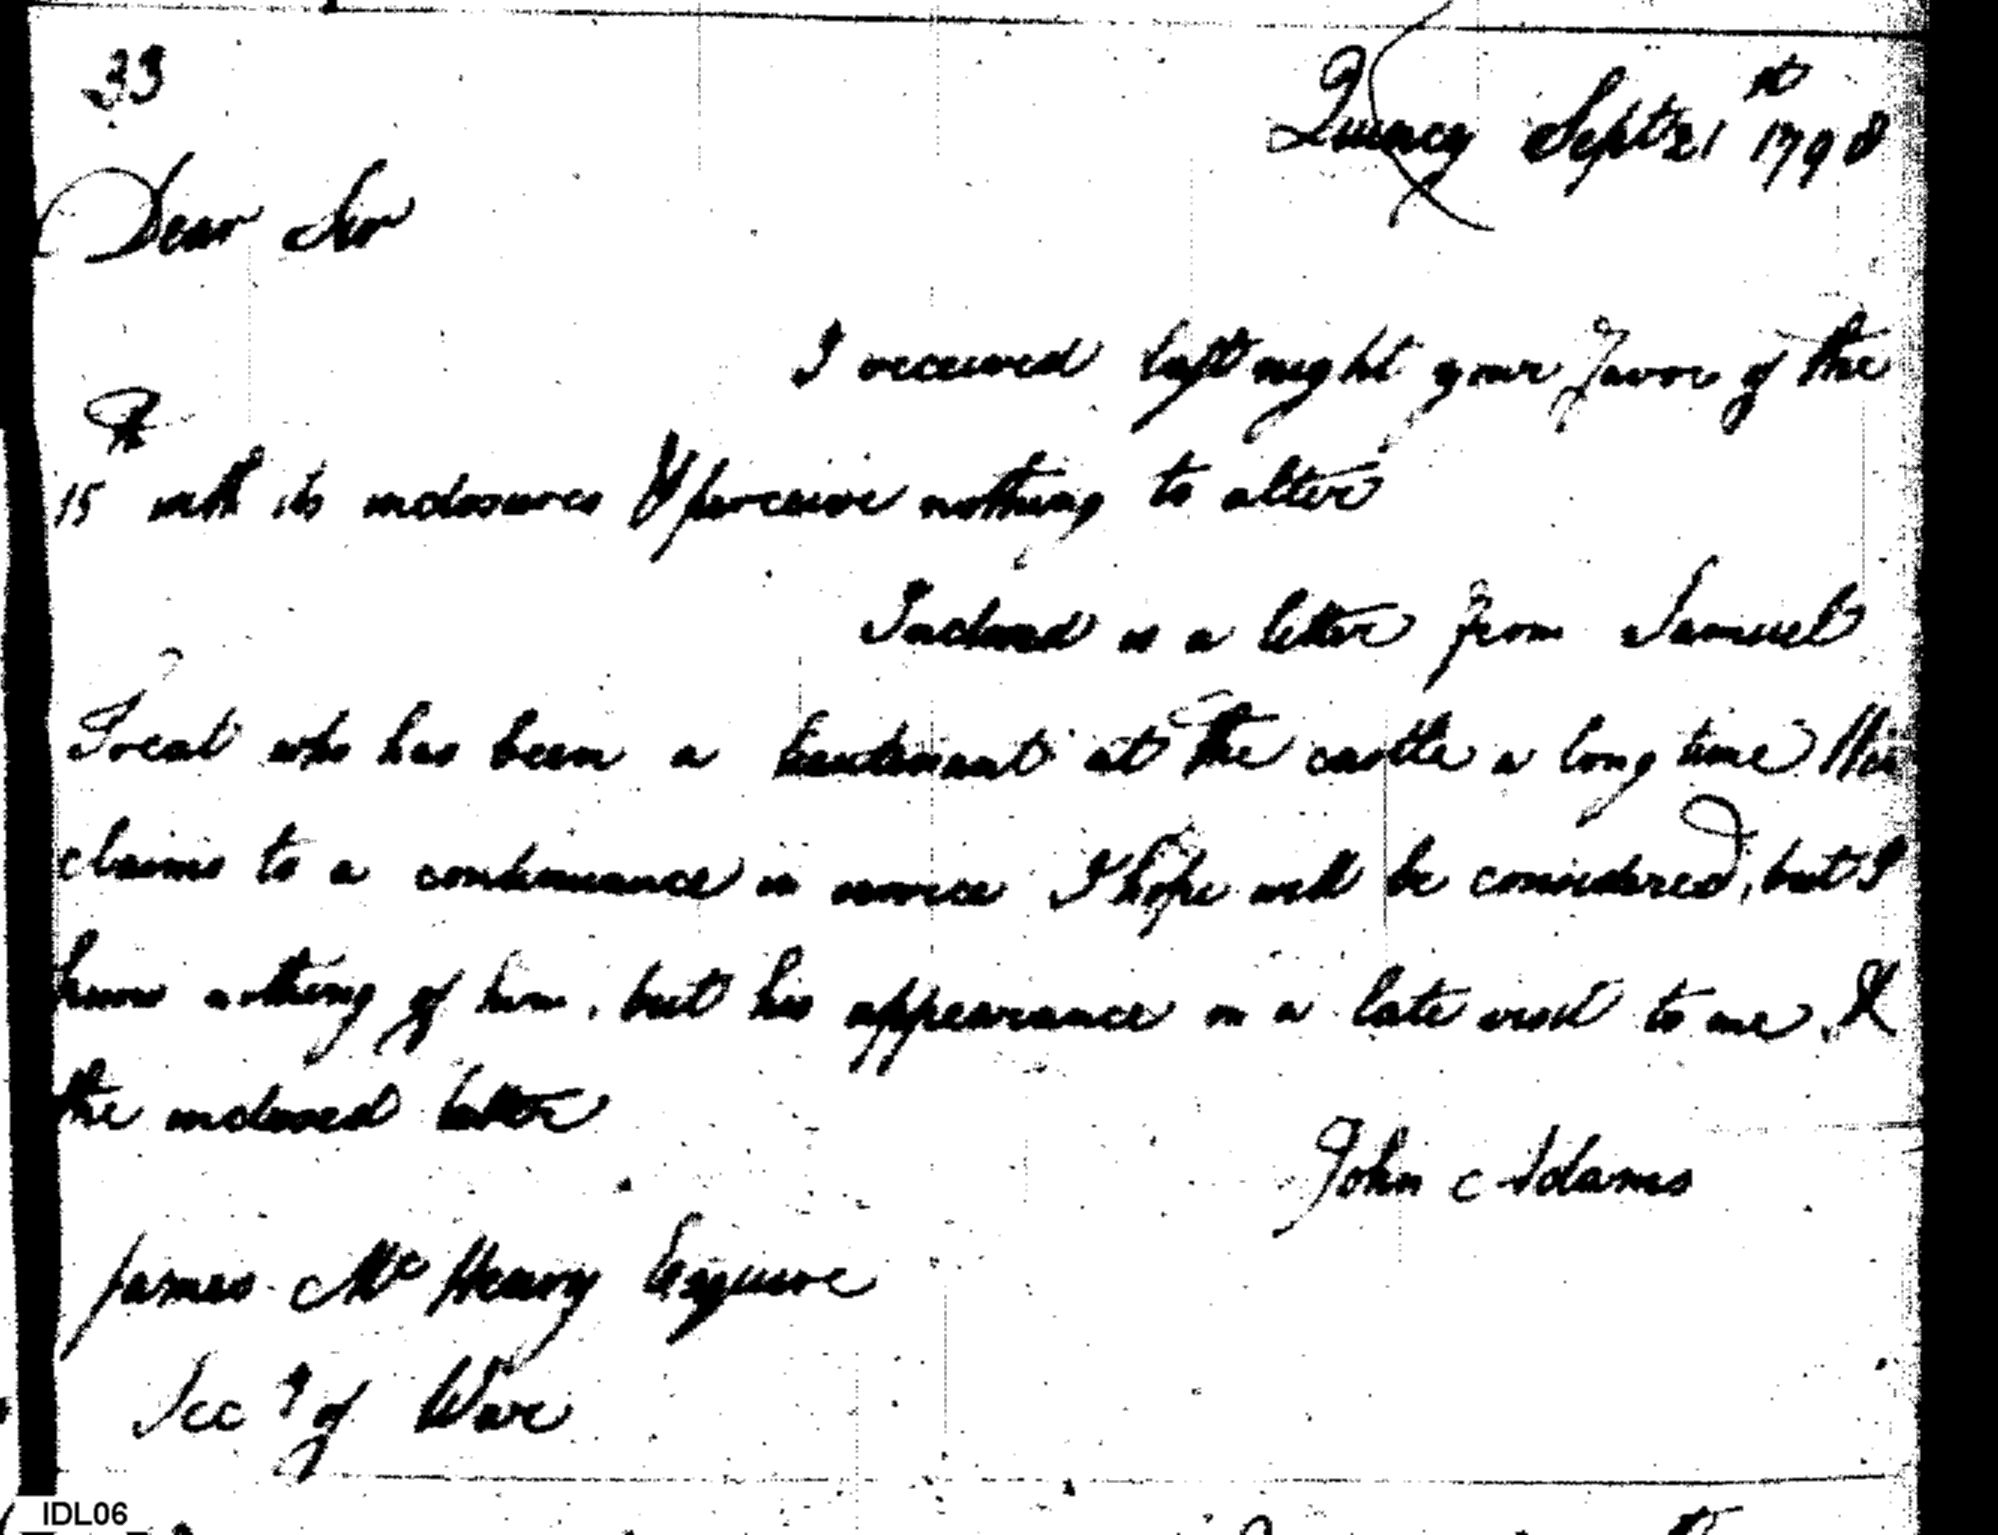 33
Quincy Sept 21st 1798
Dear Sir
I received last night your favor of the
15th with its inclosures & perceive nothing to alter
Inclosed is a letter from Samuel
Treat who has been a lieutenant at the castle a long time His
claims to a continuance in service I hope will be considered, but I
know nothing of him, but his appearance in a late visit to me, &
the inclosed letter
John Adams
James McHenry Esquire
Secy of War
IDL06